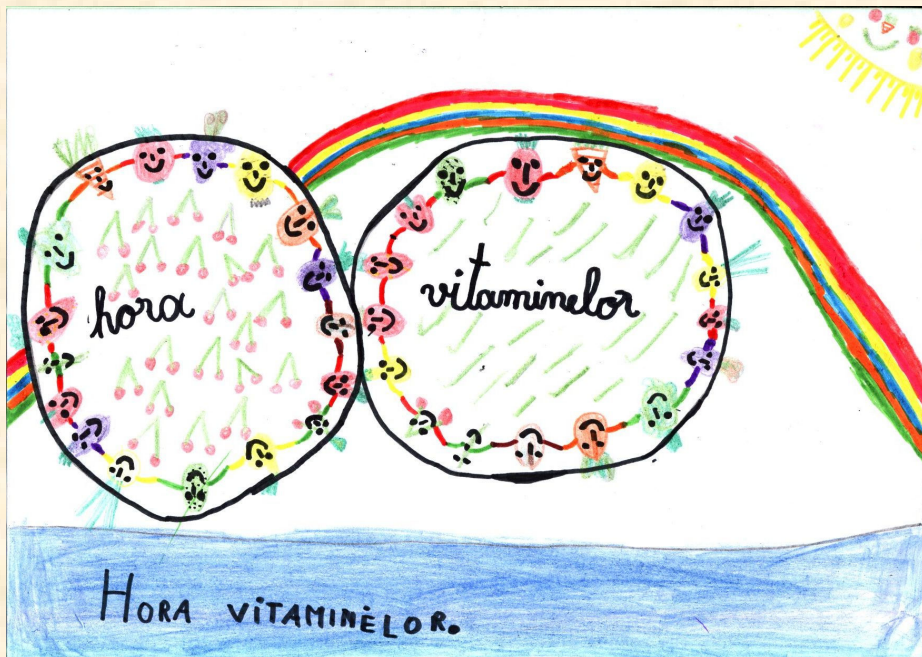 hora
vitaminelor
HORA VITAMINĖLOR.